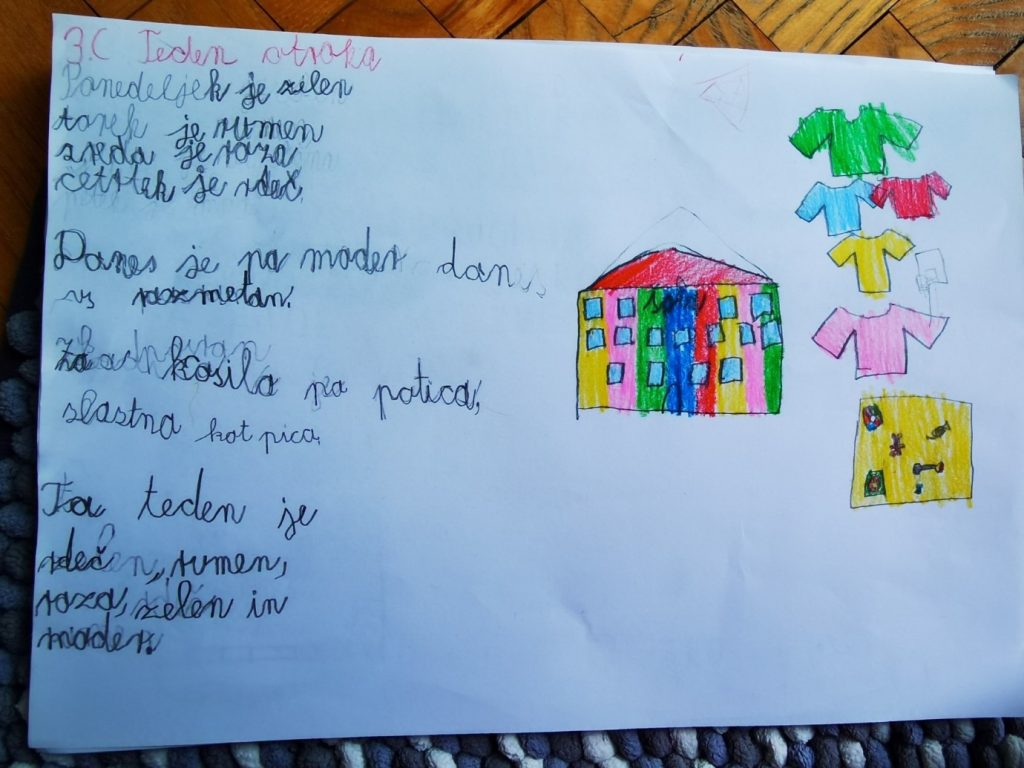 3.C Teden otroka
Ponedeljek je zelen
torek je rumen
sreda je roza
četrtek je rdeč.
Danes je pa moder danes
vs razmetan.
Za kosila pa potica,
slastna kot pica.
Ta teden je
rdeč, rumen,
roza, zelen in
moder.